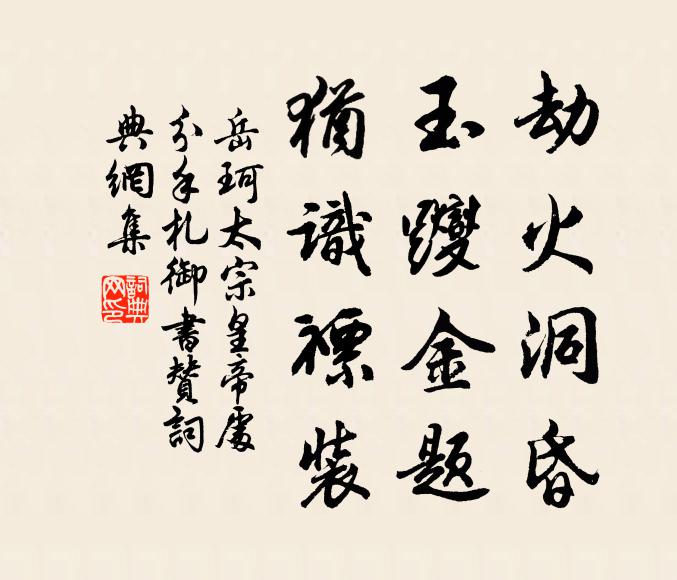 劫火洞昏
玉躞金題
猶識褾裝
岳珂太宗皇帝處
分手札御書贊詞
典網集
詞典
网印